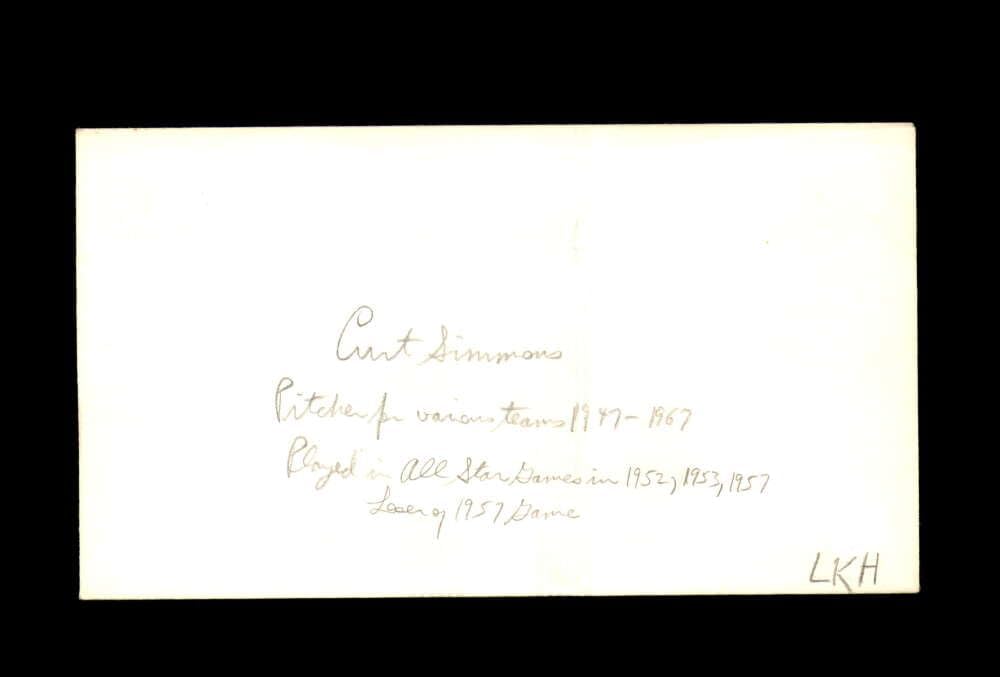 Curt Simmons
Pitcher for various teams 1947-1967
Played in All Star Games in 1952, 1953, 1957
Loser of 1957 Game
LKH